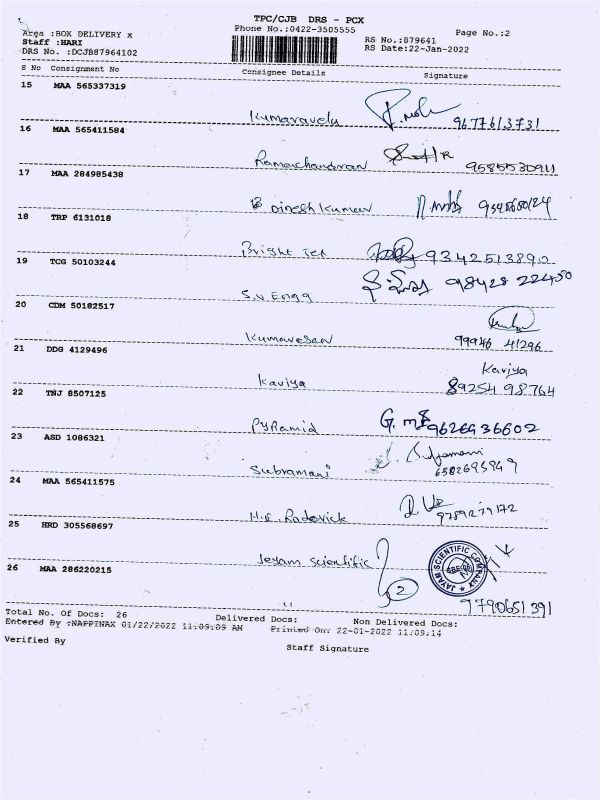 TPC/CJB DRS - PCX
Area :BOX DELIVERY x Phone No.:0422-3505555 Page No.:2
Staff :HARI RS No.:879641
DRS No. :DCJB87964102 RS Date:22-Jan-2022
S No Consignment No Consignee Details Signature
15 MAA 565337319
Kumaravelu 9677613731
16 MAA 565411584
Ramachandran 9585530911
17 MAA 284985438
B Dineshkumar
18 TRP 6131018
Bright Tex 9342513890
19 TCG 50103244
S.V Engg 98428 22450
20 CDM 50182517
Kumaresan 99946 41296
21 DDG 4129496
Kaviya
Kaviya 89254 98764
22 TNJ 8507125
Pyramid 9626936602
23 ASD 1086321
Subramani
24 MAA 565411575
H.F. Roderick
25 HRD 305568697
Jeyam Scientific
JAYAM SCIENTIFIC COMPANY
2
26 MAA 286220215
" 9790651391
Total No. Of Docs: 26 Delivered Docs: Non Delivered Docs:
Entered By :NAPPINAX 01/22/2022 11:09:09 AM Printed On: 22-01-2022 11:09:14
Verified By Staff Signature